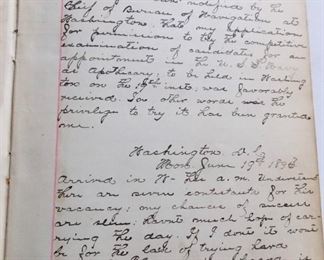 notified by the
Chief of Bureau of Navigation at
Washington. That my application
for permission to try the competitive
examination of candidates for an
appointment in the U. S. Navy
as Apothecary; to be held in Washing
ton on the inst. was favorably
received. In other words was the
privilege to try it has been granted
me.
Washington D. C.
Mon. June 19th
Arrived in W- the a.m. Understand
there are seven contestants for this
vacancy; my chances of success
are slim. Havnt much hope of car-
rying the day. If I dont it wont
be for the lack of trying hard